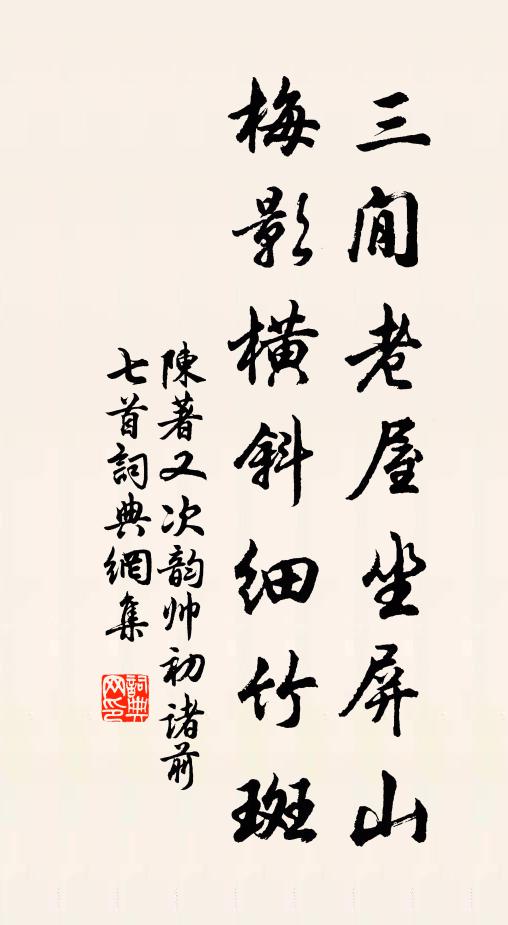 三間老屋坐屏山
梅影橫斜細竹斑
陳著又次韵帅初諸前
七首詞典網集
詞典网印